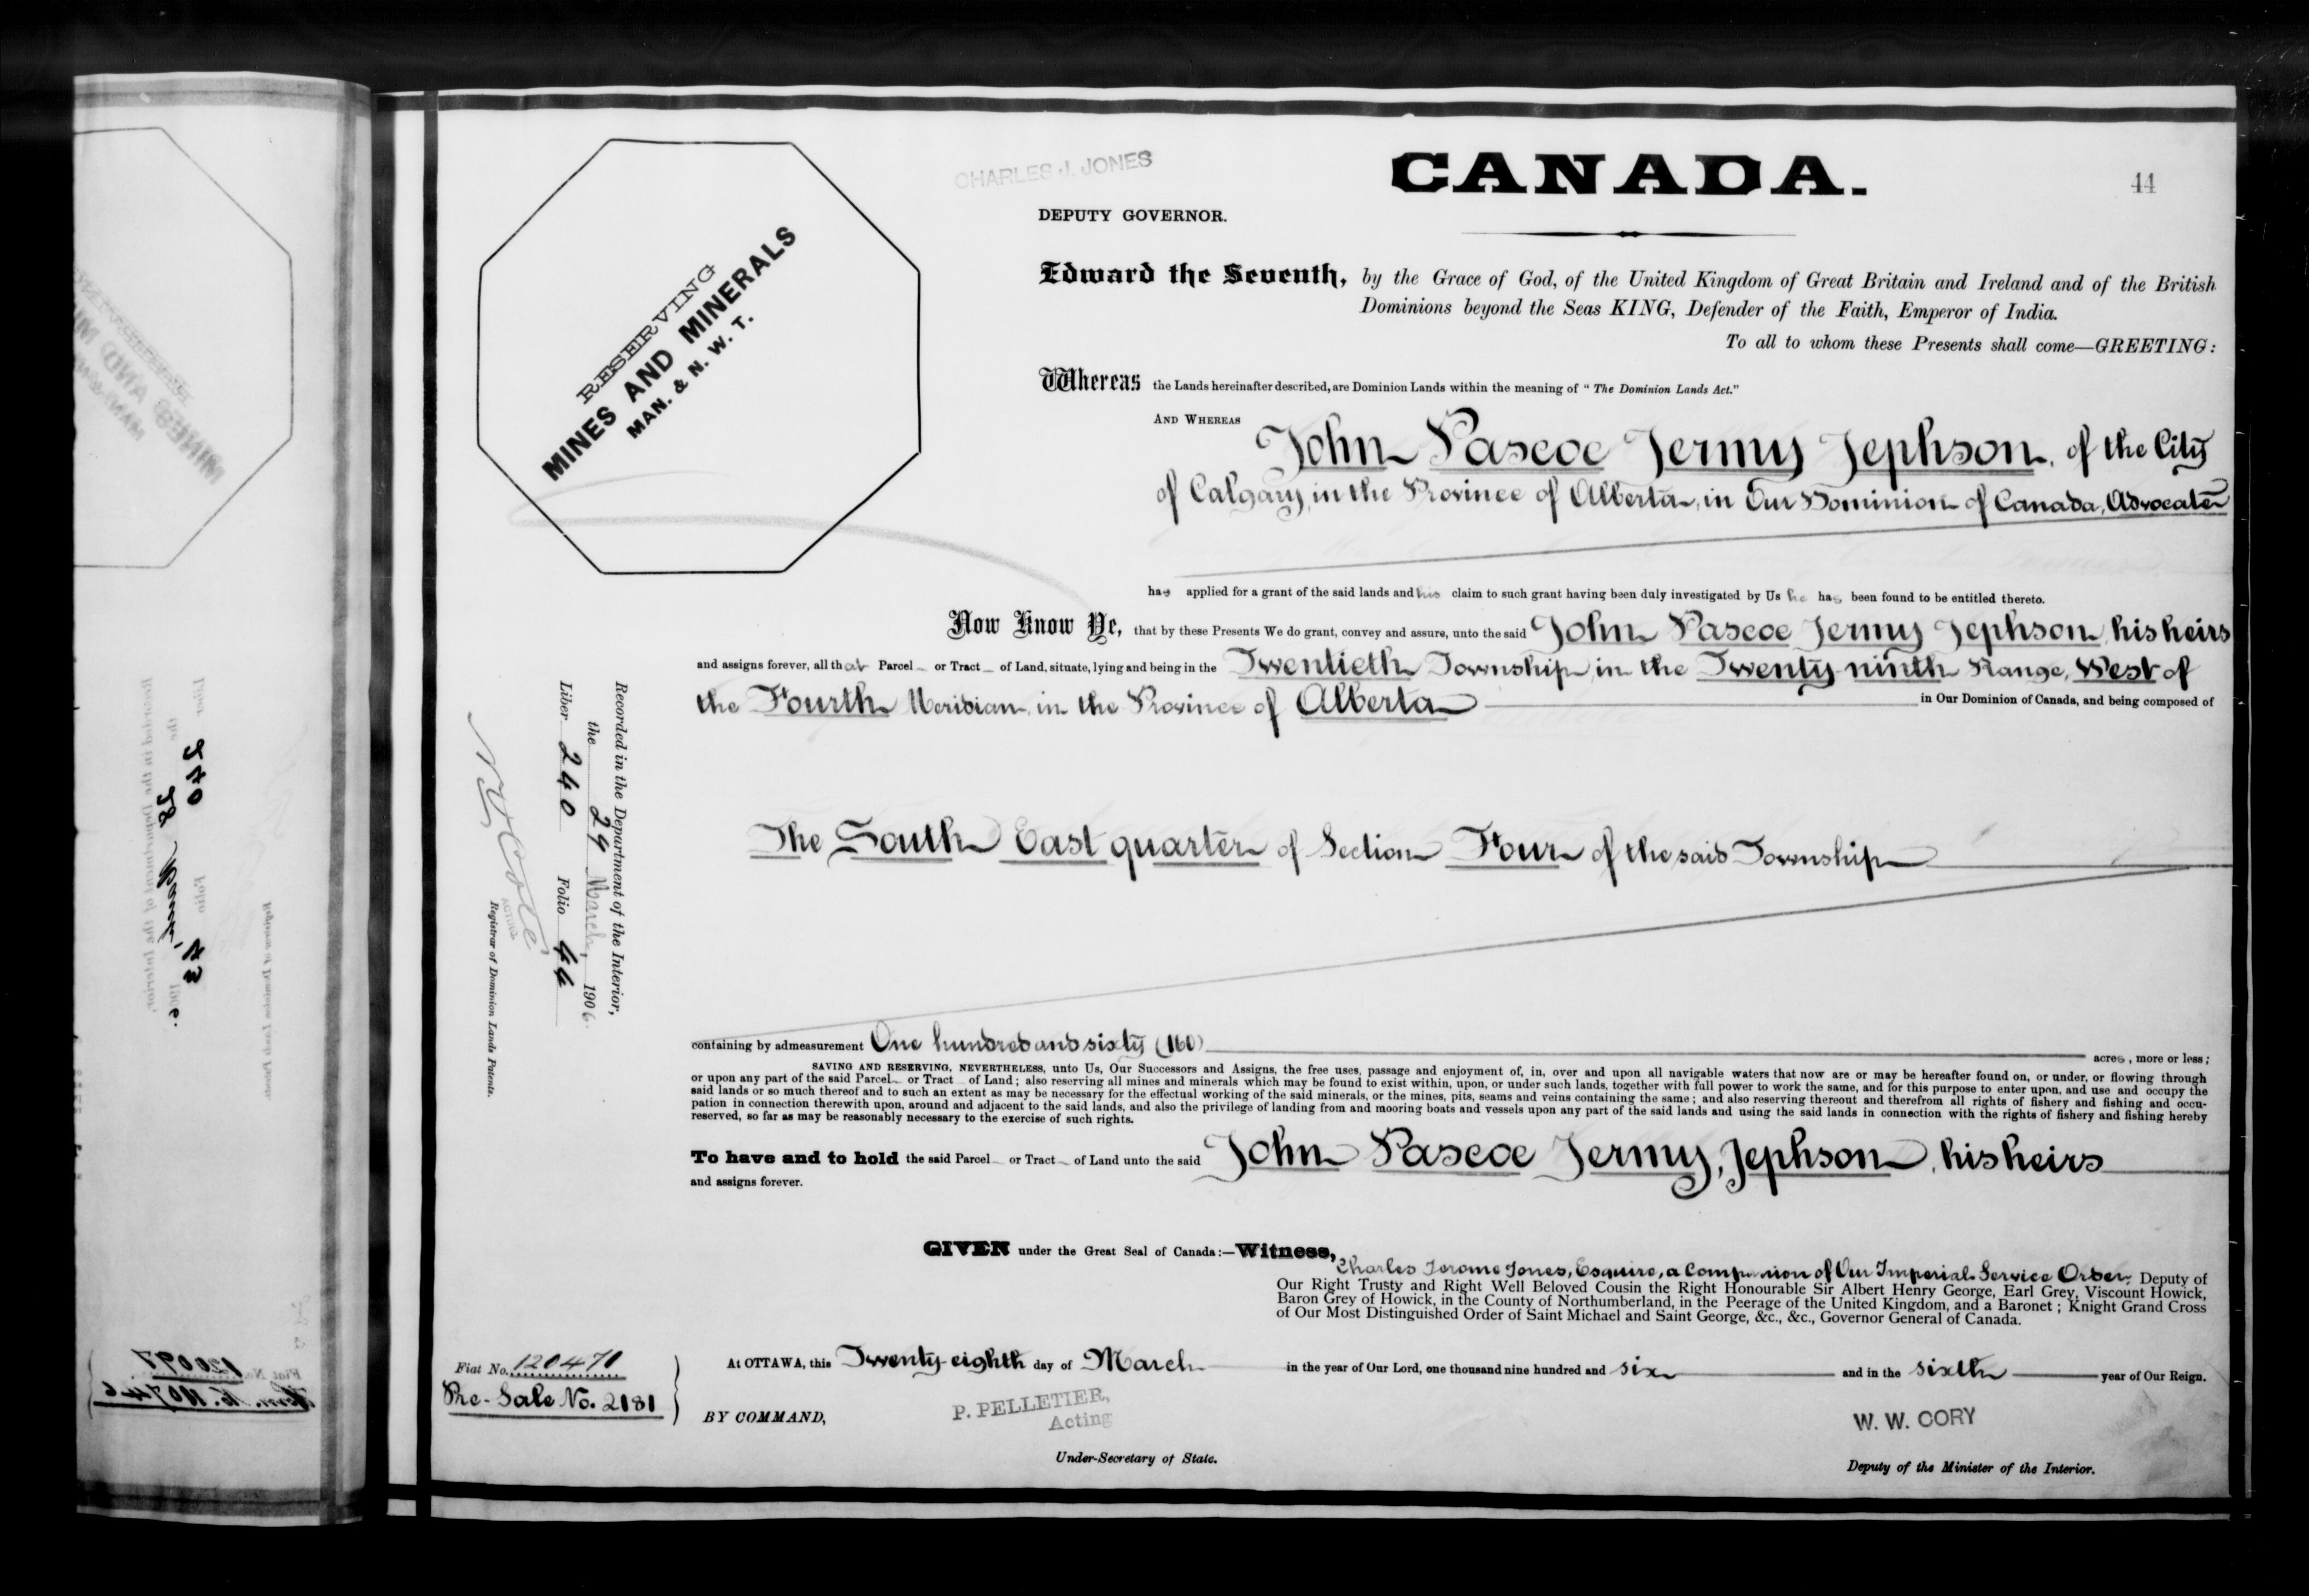 CHARLES J. JONES
CANADA.
44
DEPUTY GOVERNOR.
RESERVING
MINES AND MINERALS
MAN. & N. W. T.
Edward the Seventh, by the Grace of God, of the United Kingdom of Great Britain and Ireland and of the British
Dominions beyond the Seas KING, Defender of the Faith, Emperor of India.
To all to whom these Presents shall come—GREETING:
Whereas the Lands hereinafter described, are Dominion Lands within the meaning of "The Dominion Lands Act."
AND WHEREAS John Pascoe Jermy Jephson, of the City
of Calgary, in the Province of Alberta, in Our Dominion of Canada, Advocate
has applied for a grant of the said lands and his claim to such grant having been duly investigated by Us he has been found to be entitled thereto.
Now Know Ye, that by these Presents We do grant, convey and assure, unto the said John Pascoe Jermy Jephson, his heirs
and assigns forever, all that Parcel or Tract of Land, situate, lying and being in the Twentieth Township, in the Twenty-ninth Range, West of
the Fourth Meridian, in the Province of Alberta in Our Dominion of Canada, and being composed of
The South East quarter of Section Four of the said Township
Recorded in the Department of the Interior,
the 29 March, 1906.
Liber 240 Folio 44
N. O. Coté
ACTING
Registrar of Dominion Lands Patents.
containing by admeasurement One hundred and sixty (160) acres, more or less;
SAVING AND RESERVING, NEVERTHELESS, unto Us, Our Successors and Assigns, the free uses, passage and enjoyment of, in, over and upon all navigable waters that now are or may be hereafter found on, or under, or flowing through
or upon any part of the said Parcel or Tract of Land; also reserving all mines and minerals which may be found to exist within, upon, or under such lands, together with full power to work the same, and for this purpose to enter upon, and use and occupy the
said lands or so much thereof and to such an extent as may be necessary for the effectual working of the said minerals, or the mines, pits, seams and veins containing the same; and also reserving thereout and therefrom all rights of fishery and fishing and occu-
pation in connection therewith upon, around and adjacent to the said lands, and also the privilege of landing from and mooring boats and vessels upon any part of the said lands and using the said lands in connection with the rights of fishery and fishing hereby
reserved, so far as may be reasonably necessary to the exercise of such rights.
To have and to hold the said Parcel or Tract of Land unto the said John Pascoe Jermy Jephson, his heirs
and assigns forever.
GIVEN under the Great Seal of Canada:—Witness,
Charles Jerome Jones, Esquire, a Companion of Our Imperial Service Order, Deputy of
Our Right Trusty and Right Well Beloved Cousin the Right Honourable Sir Albert Henry George, Earl Grey, Viscount Howick,
Baron Grey of Howick, in the County of Northumberland, in the Peerage of the United Kingdom, and a Baronet; Knight Grand Cross
of Our Most Distinguished Order of Saint Michael and Saint George, &c., &c., Governor General of Canada.
Fiat No. 120471
Pre-Sale No. 2181
At OTTAWA, this Twenty-eighth day of March in the year of Our Lord, one thousand nine hundred and six and in the sixth year of Our Reign.
BY COMMAND,
P. PELLETIER,
Acting
Under-Secretary of State.
W. W. CORY
Deputy of the Minister of the Interior.